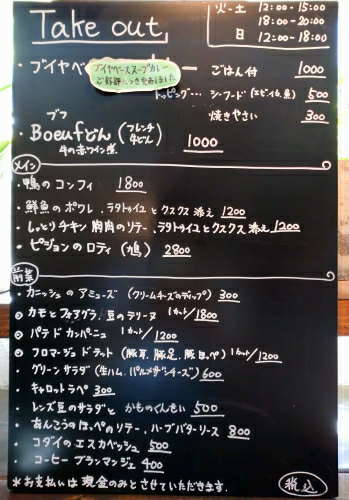 Take out
火-土 12:00-15:00
18:00-20:00
日 12:00-18:00
・ブイヤベ
ブイヤベーススープカレー
ご好評につき
ー ごはん付 1000
トッピング… シーフード(エビ、イカ、魚) 500
焼きやさい 300
ブフ
・Boeufどん(フレンチ牛どん) 1000
牛の赤ワイン煮
メイン
・鴨のコンフィ 1800
・鮮魚のポワレ、ラタトゥイユとクスクス添え 1200
・しっとりチキン胸肉のソテー、ラタトゥイユとクスクス添え 1200
・ピジョンのロティ(鳩) 2800
前菜
・カニッシュのアミューズ(クリームチーズのディップ) 300
カモとフォアグラ、豆のテリーヌ 1カット/1800
パテドカンパーニュ 1カット/1200
フロマージュドテット(豚耳、豚足、豚ほっぺ) 1カット/1200
・グリーンサラダ(生ハム、パルメザンチーズ) 600
・キャロットラペ 300
・レンズ豆のサラダとかものくんせい 500
・あんこうのほっぺのソテー、ハーブバターソース 800
・コダイのエスカベッシュ 500
・コーヒーブランマンジェ 400
*お支払いは現金のみとさせていただきます。
税込